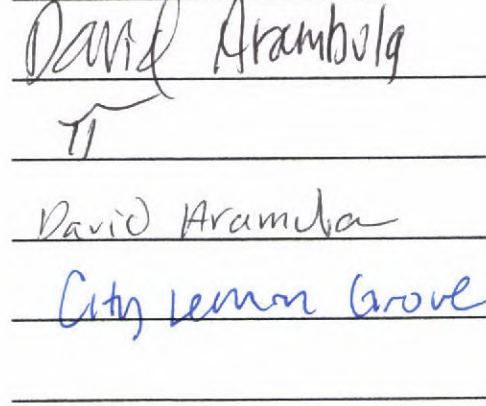 David Arambula
David Arambula
City Lemon Grove